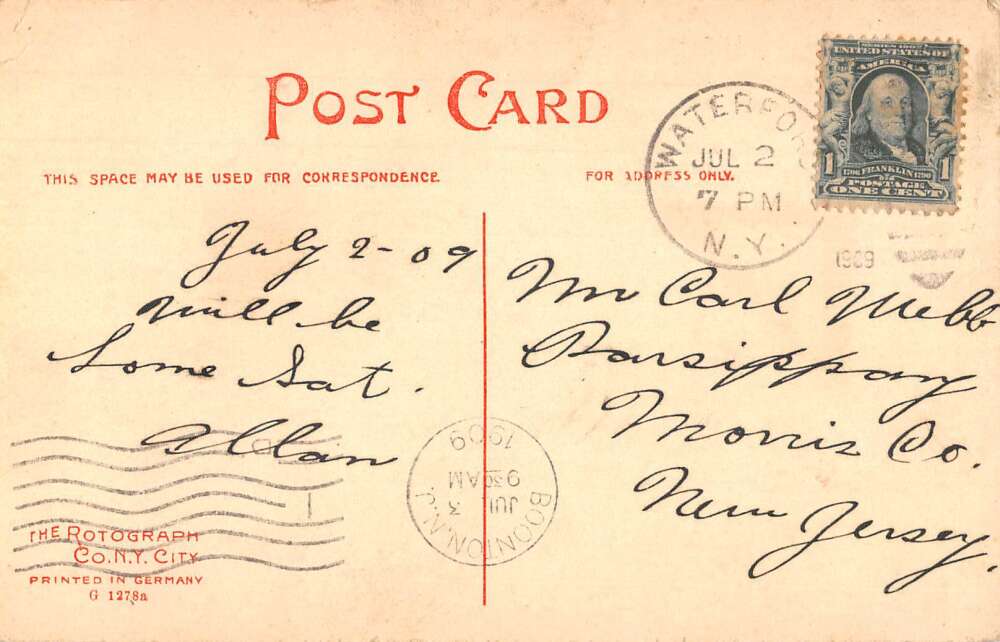 POST CARD
THIS SPACE MAY BE USED FOR CORRESPONDENCE.
FOR ADDRESS ONLY.
WATERFORD
JUL 2
7 PM
N.Y.
1909
SERIES 1902
UNITED STATES OF
AMERICA
1 1
1706 FRANKLIN 1790
POSTAGE
ONE CENT
July 2-09
Will be
home Sat.
Allan
Mr Carl Webb
Parsippany
Morris Co.
New Jersey.
BOONTON, N.J.
JUL 3
930 AM
1909
THE ROTOGRAPH
CO. N.Y. CITY
PRINTED IN GERMANY
G 1278a